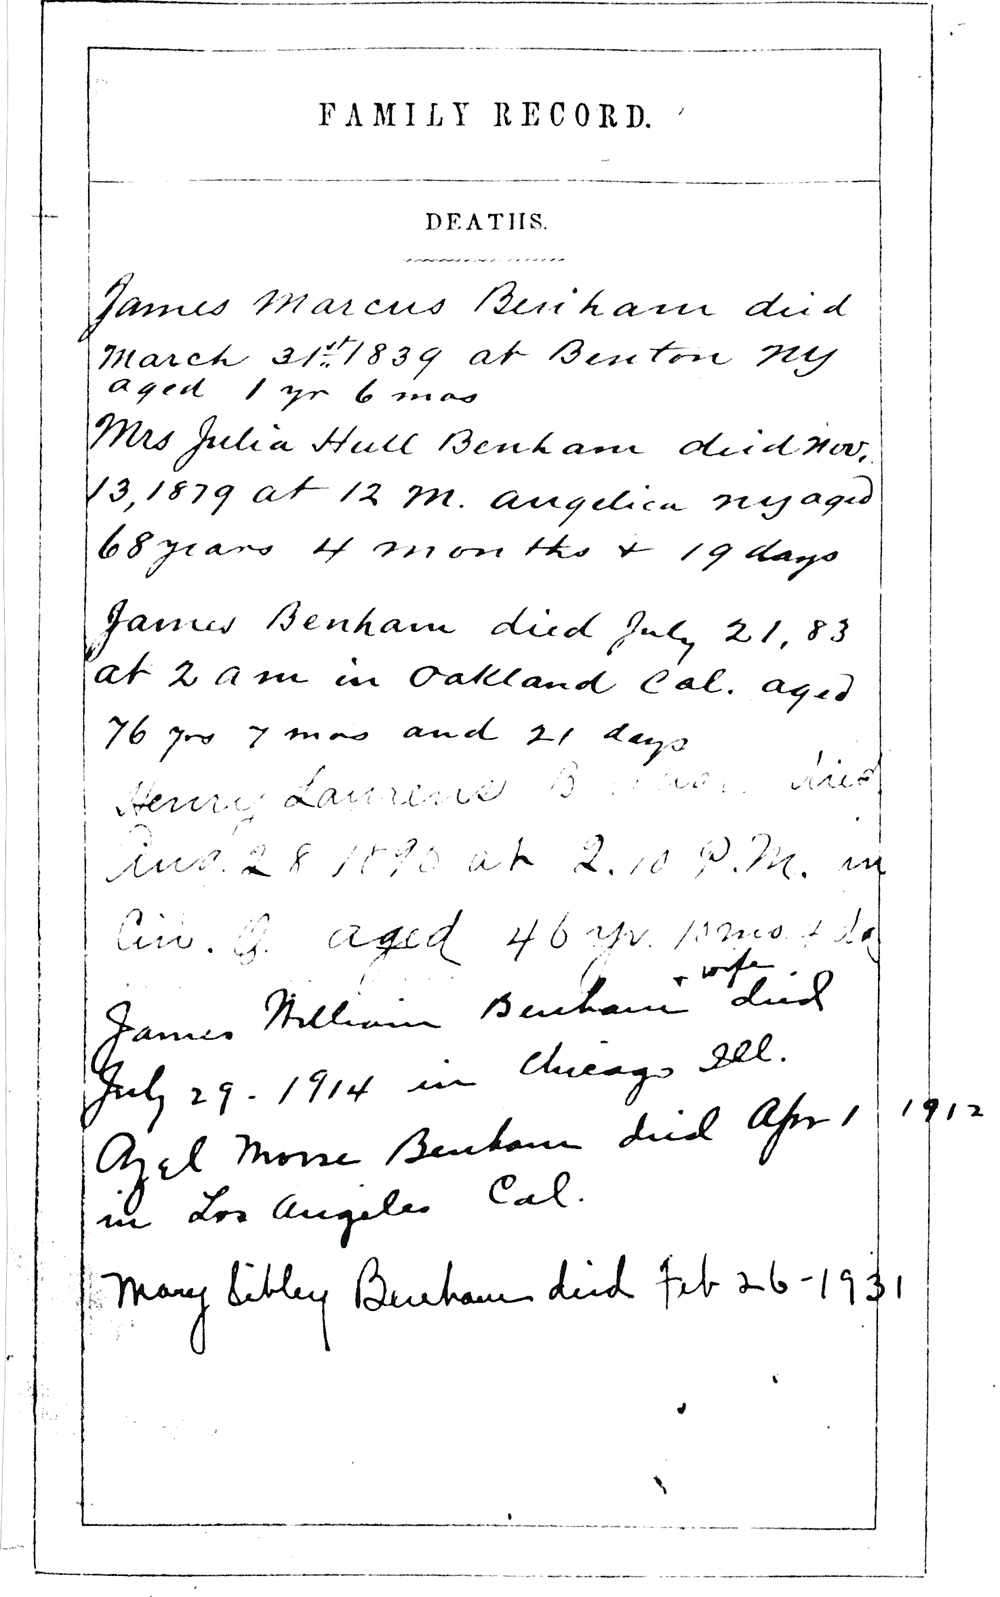 FAMILY RECORD.
DEATHS.
James Marcus Benham died
March 31st 1839 at Benton NY
aged 1 yr 6 mos
Mrs Julia Hull Benham died Nov.
13, 1879 at 12 M. Angelica NY aged
68 years 4 months + 19 days
James Benham died July 21, 83
at 2 am in Oakland Cal. aged
76 yrs 7 mos and 21 days
Henry Laurens died
28 1890 at 2.10 P.M. in
Cin. O. aged 46 yr. 10 mos
+ wife
James William Benham died
July 29 - 1914 in Chicago Ill.
Azel Morse Benham died Apr 1 1912
in Los Angeles Cal.
Mary Sibley Benham died Feb 26 - 1931